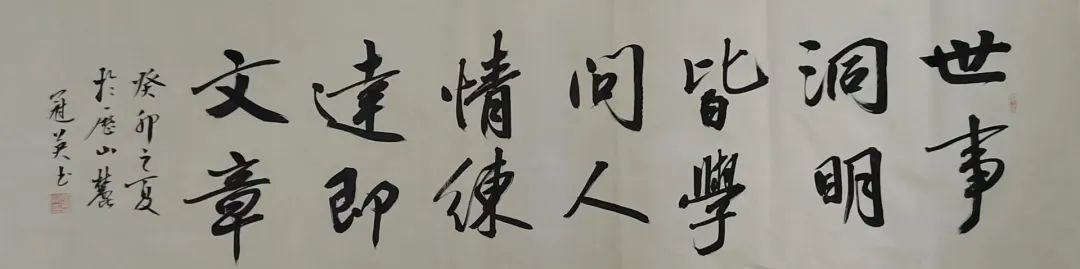 世事
洞明
皆學
问人
情練
達即
文章
癸卯之夏
於歷山麓
冠英书